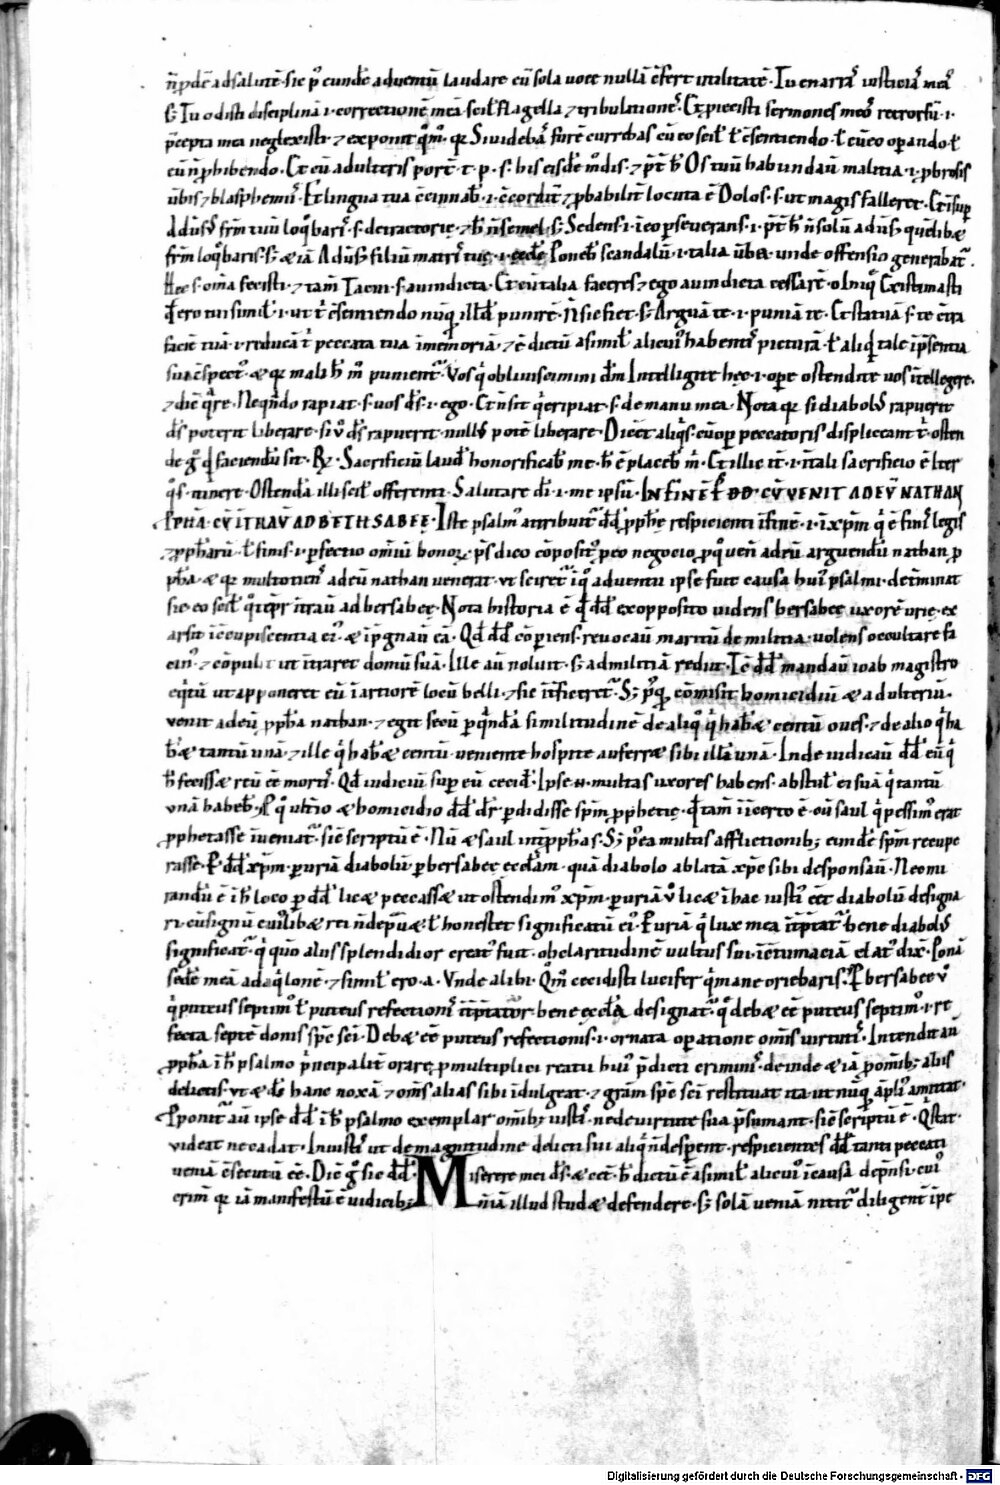 n̄ p̄dē ad salutē · sic p̄ cunde aduentū laudare cū sola uoce nullā c̄fert utilitatē · Tu enarras iusticias meas
s; Tu odisti disciplinā · i · correctionē meā scil flagella ⁊ tribulationes · Et proiecisti sermones meos retrorsū · i ·
p̄cepta mea neglexisti · ⁊ exponit qm̄ · qr Si uidebas furē currebas cū eo scil ł c̄sentiendo · ł cū eo op̄ando · ł
cū n̄ p̄hibendo · Et cū adulteris port · t · p · s · his eisdē m̄dis · ⁊ p̄t h̄ Os tuū habundauit malitia · i · p̄brosis
ūbis ⁊ blasphemiis · Et lingua tua c̄cinnabat · i · c̄cordit ⁊ p̄babilit locuta ē Dolos · s · ut magis falleret · Et insup
Adūsus frm̄ tuū loqbaris · s · detractorie · ⁊ h̄ n̄ semel · s; Sedens · i · ico p̄seuerans · i · p̄t h̄ n̄ solū adūsus quēlibæ
frm̄ loqbaris · s; æ iā Adūsus filiū matris tuę · i · eccłe Ponebas scandalū · i · talia ūba · unde offensio generabat ·
Hec · s · om̄a fecisti · ⁊ tam̄ Tacui · s · a uindicta · Et cū talia faceres ⁊ ego a uindicta cessarē · o Iniq Existimasti
q ero tui similis · i · ut t c̄sentiendo nūq illud punirē · N̄ sic fiet · s; Arguā te · i · puniā te · Et statuā · s · te c̄tra
faciē tuā · i · reducā t peccata tua ī memoriā · ⁊ ē dictū a simił alicui habentis picturā · ł aliqd tale ī p̄sentia
sui c̄spect · æ qr mali h̄ m̄ punient Vos q obliuiscimini dm̄ Intelligite hęc · i · ope ostendite uos ītellegere ·
⁊ dic qre · Neqndo rapiat · s · uos ds · i · ego · Et n̄ sit q eripiat · s · de manu mea · Nota qr si diabolus rapuerit
ds poterit liberare · si ū ds rapuerit · nullus potē liberare · Dicet aliqs · cū op̄ peccatoris displiceant t · osten
de g q faciendū sit · R⁊ · Sacrificiū laudis honorificabit me · h̄ ē placebit m̄ · Et illic it · i · ī tali sacrificio ē Iter
qs · niuere · Ostendā illi scil offerenti · Salutare di · i · me ipsū · IN FINĒ P̄S DD · CŪ VENIT AD EŪ NATHAN
PPHĀ · CŪ ĪTRAV̄ AD BETHSABEE · Iste psalm attribuit dd pphę respicienti ī finē · i · ī xpm̄ q ē finis legis
⁊ pph̄arū · ł finis · i · pfectio om̄iū bonorꝫ · p̄s dico cōposit p eo negocio p q uen̄ ad eū arguendū nathan p
pha · æ qr multotiens ad eū nathan uenerat · ut sciret ī q aduentu ipse fuit causa hui psalmi · det̄minat
sic eo scil q tp̄r ītrauit ad bersabee · Nota historia ē q dd ex opposito uidens bersabee uxorē urie · ex
arsit ī c̄cupiscentia ei · æ īp̄gnauit eā · Qd dd cōperiens · reuocauit maritū de militia · uolens occultare fa
cin · ⁊ cōpulit ut ītraret domū suā · Ille aut̄ noluit · s; ad militiā rediit · Tc̄ dd mandauit ioab magistro
eqtū ut apponeret eū ī artiorē locū belli · ⁊ sic int̄ficeret · S; p q cōmisit homicidiū æ adulteriū ·
uenit ad eū ppha nathan · ⁊ egit secū p qndā similitudinē de aliq q habæ centū oues · ⁊ de alio q ha
bæ tantū unā · ⁊ ille q habæ centū · ueniente hospite auferræ sibi illā unā · Inde iudicauit dd eū q
h̄ fecissæ reū cē mortis · Qd iudiciū sup eū cecidit · Ipse n̄ multas uxores habens · abstulit ei suā q tantū
unā habebat · P q ultio æ homicidio dd dr pdidisse spm̄ pphetię · q tam̄ īcerto ē · cū saul q pessim erat
pphetasse īueniat · sic scriptū ē · Nū æ saul int pphas · S; p ea multis afflictionib; eundē spm̄ recupe
rasse · P dd xpm̄ · p uriā diabolū · p bersabee ecclam · quā diabolo ablatā xpc sibi desponsauit · Ne mi
randū ē ī h̄ loco p dd licæ peccassæ ut ostendim xpm̄ · p uriā ū licæ ī hac iusti ēet diabolū designa
ri · cū signū cuilibæ rei īdep̄uæ ł honestet significatū ei · P uriā q lux mea int̄ptat bene diabolus
significat · q quo aliis splendidior creat fuit · ob claritudinē uultus sui · ī c̄tumaciā elat dix · Ponā
sedē meā ad aqlonē · ⁊ similis ero · a · Vnde alibi · Qm̄ cecidisti lucifer q mane oriebaris · P bersabee ū
q puteus septim ł puteus refectionis int̄ptatur bene eccła designat · q debæ cē puteus septim · i · re
fecta septē donis sp̄c sci · Debæ cē puteus refectionis · i · ornata op̄atione om̄is uirtutis · Intendit aū
ppha ī h̄ psalmo p̄ncipalit orare p multiplici reatu hui p̄dicti criminis · deinde æ iā p om̄ib; aliis
delictis · ut æ ds hanc noxā ⁊ om̄s alias sibi īdulgeat · ⁊ grām sp̄c sci restituat ita ut nūq āplius amittat ·
Pponit aū ipse dd ī h̄ psalmo exemplar om̄ib; iustis · ne de uirtute sua p̄sumant · sic scriptū ē · Q stat ·
uideat ne cadat · Iniustis ut de magnitudine delicti sui aliq n̄ desperent · respicientes dd tanti peccati
ueniā c̄secutū ēē · Dic g sic dd · Miserere mei ds · æ cet · h̄ dictū ē a simił alicui ī causa dep̄nsi · cui
crim̄ qr iā manifestū ē iudicib; n̄ iā illud studæ defendere · s; solā ueniā nitit diligent ipe
Digitalisierung gefördert durch die Deutsche Forschungsgemeinschaft · DFG